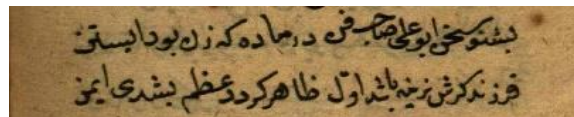 بشنو سخن ابو علی صاحب فن در ماده که زن بود ابستن
فرزند کرش نرینه باشد اول ظاهر کردد عظم بثدی ایمن